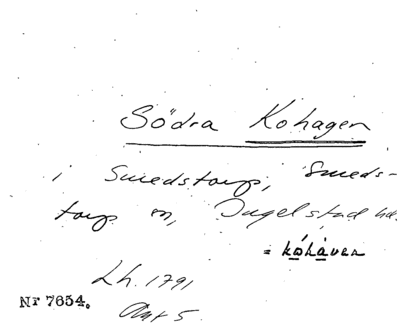 Södra Kohagen
i Smedstorp, Smeds-
torp sn, Ingelstad hd.
= kóhàven
Lh. 1791
Akt 5.
Nr 7654.